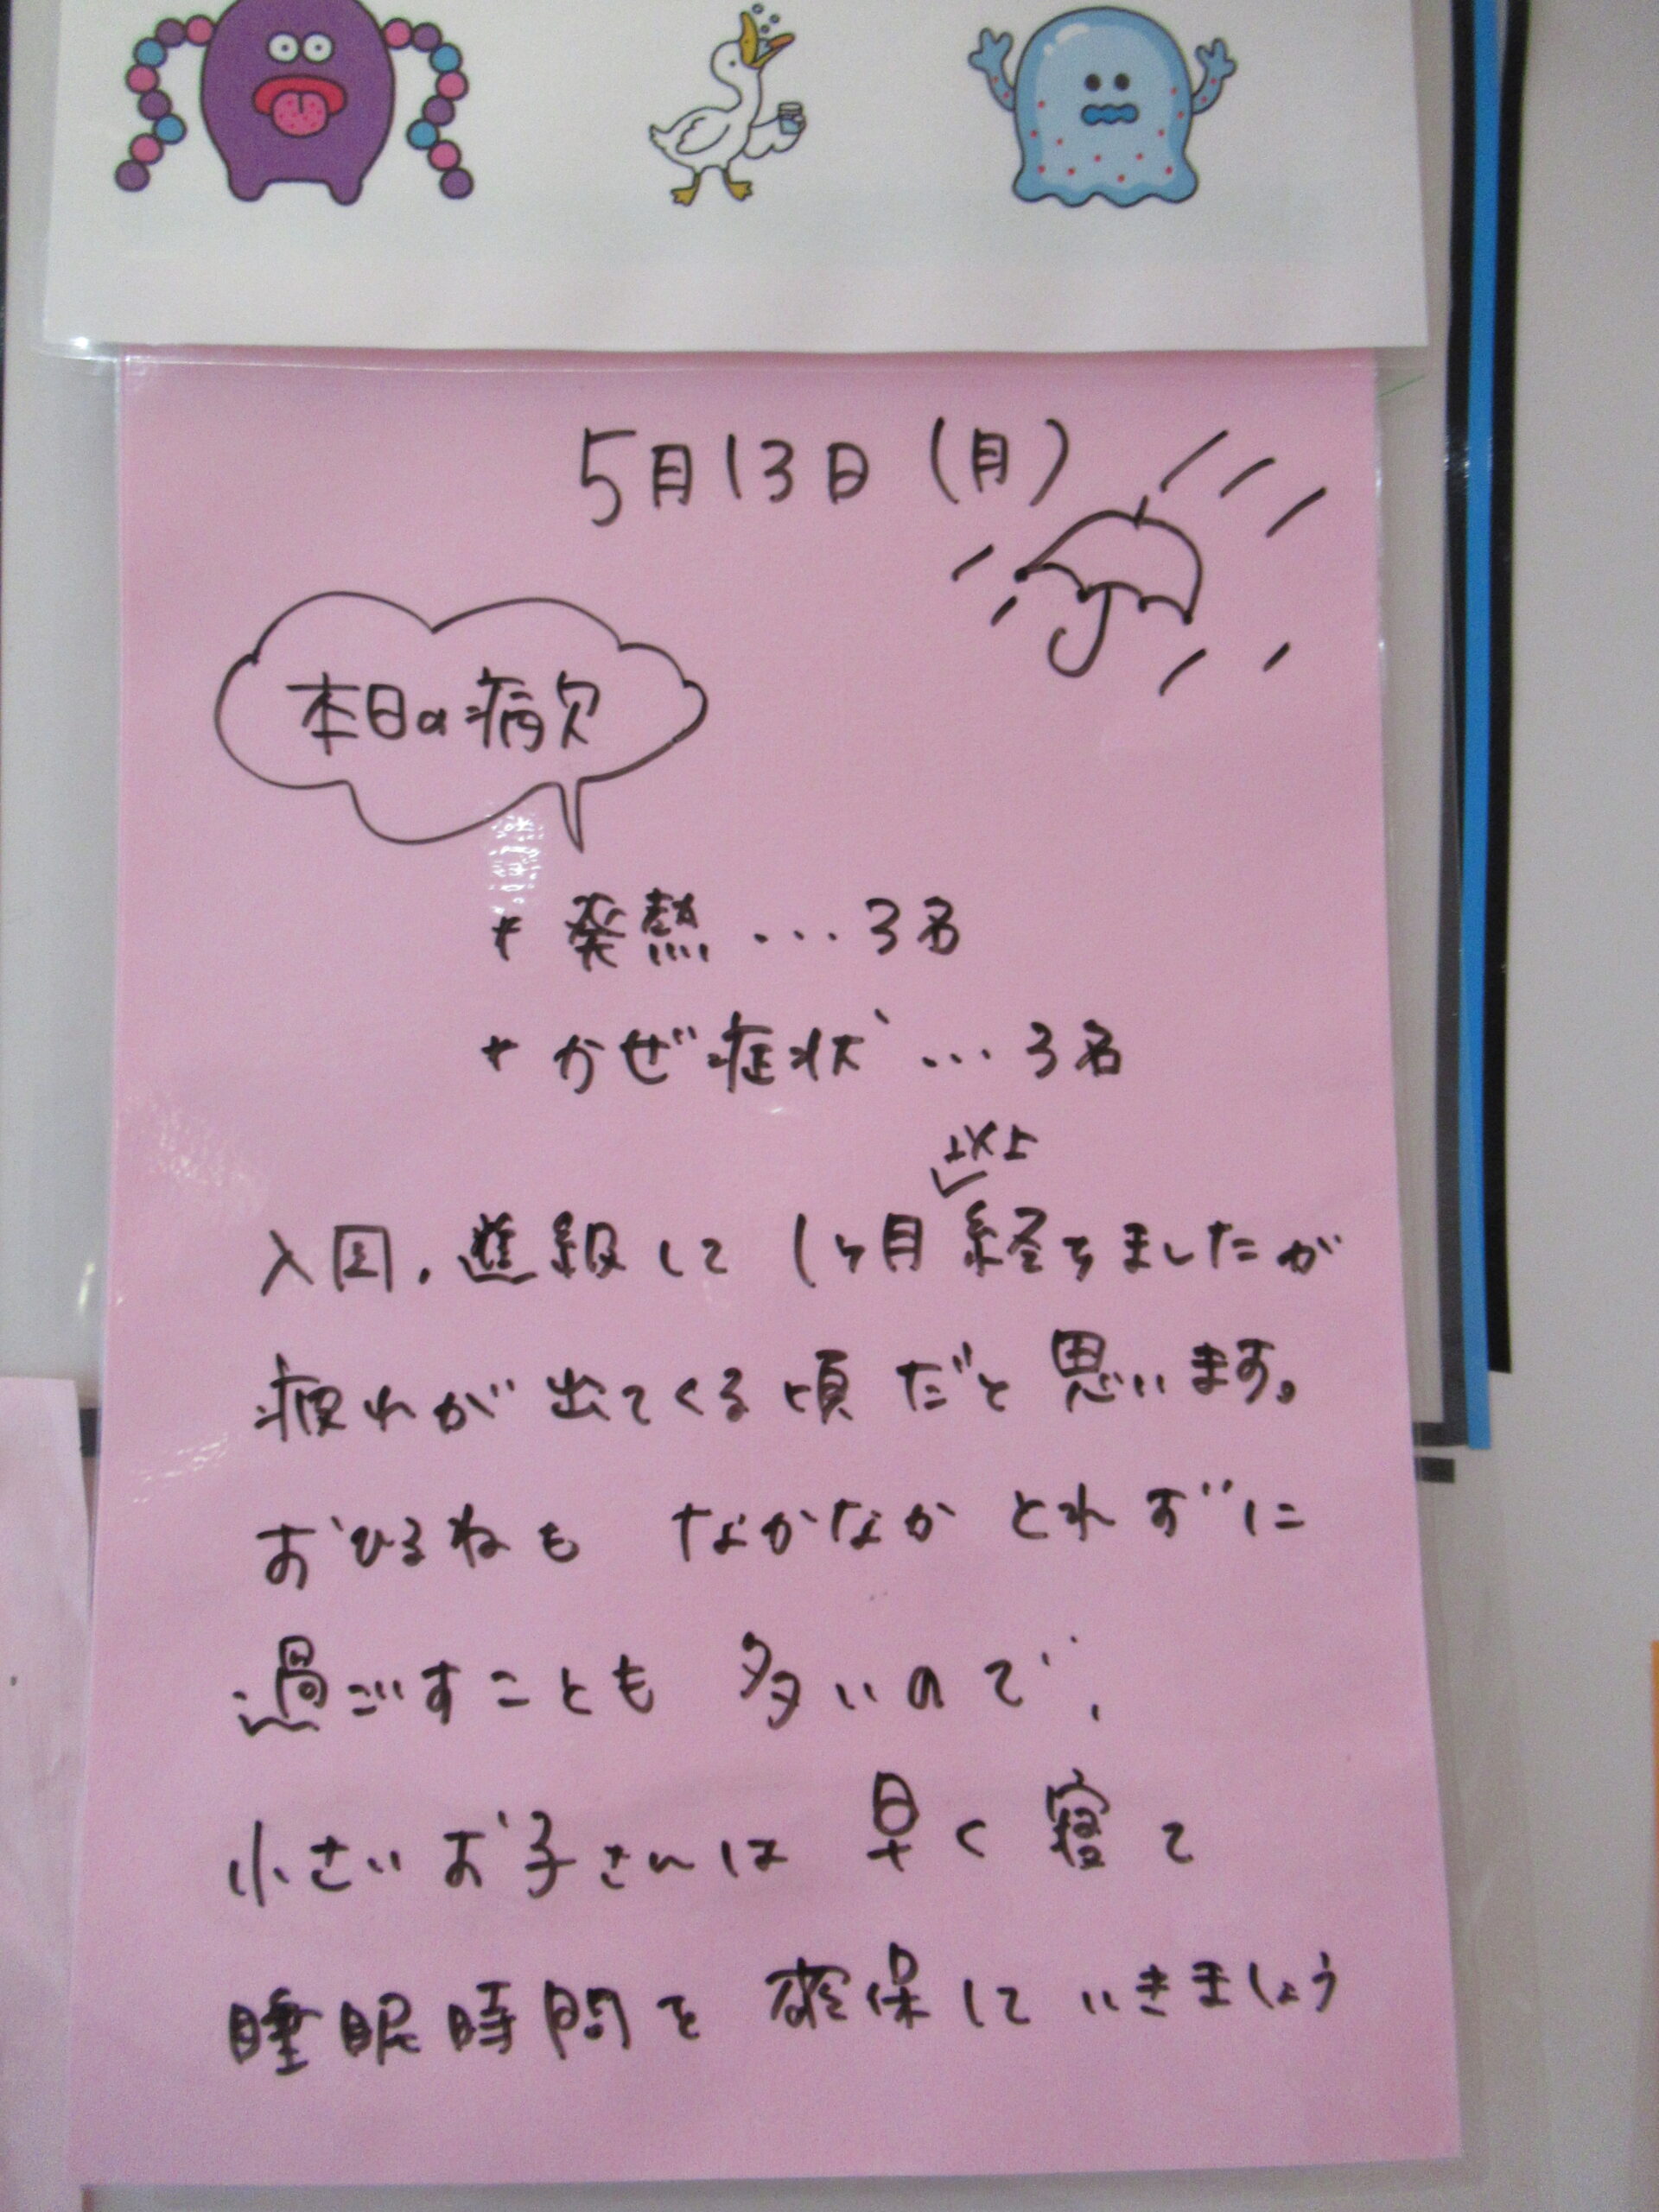 5月13日(月)
本日の病欠
* 発熱 … 3名
* かぜ症状 … 3名
以上
入園、進級して 1ヶ月 経ちましたが
疲れが 出てくる頃 だと 思います。
おひるねも なかなか とれずに
過ごすことも 多いので、
小さいお子さんは 早く 寝て
睡眠時間を 確保して いきましょう